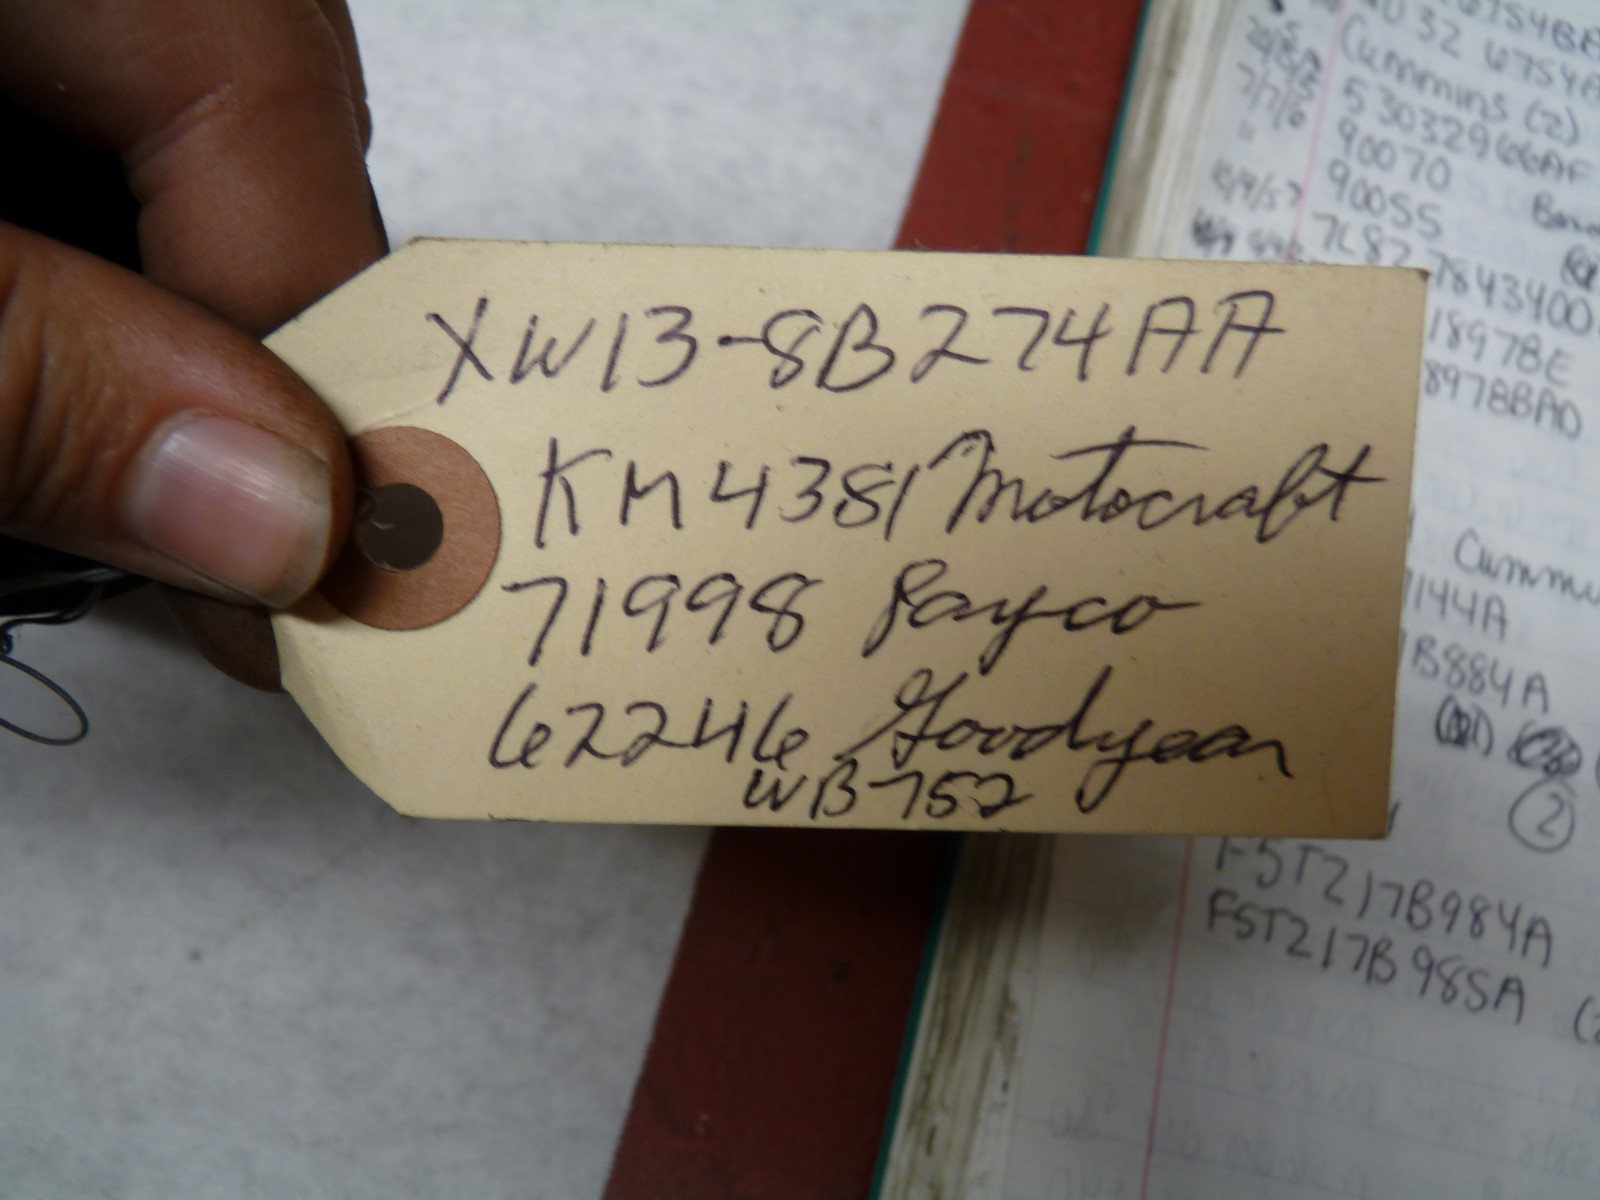 XW13-8B274AA
KM4381 Motocraft
71998 Dayco
62246 Goodyear
WB752
Cummins (2)
53032966AF
90070
90055
7843400
1897BE
8978BAD
7144A
B884A
2
F5T217B984A
F5T217B985A